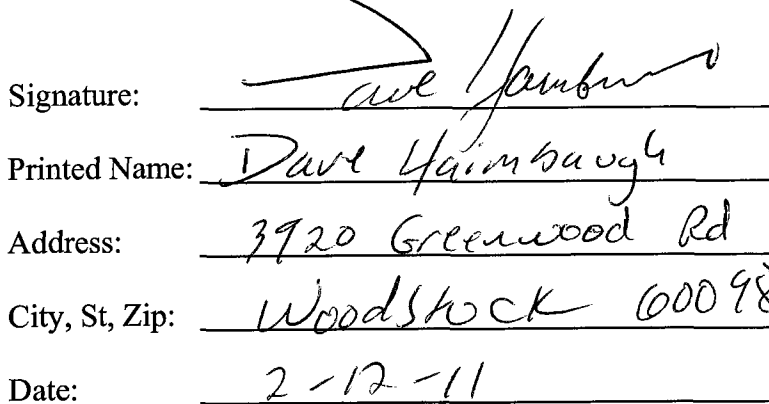 Signature: Dave Haimbaugh
Printed Name: Dave Haimbaugh
Address: 3920 Greenwood Rd
City, St, Zip: Woodstock 60098
Date: 2-12-11